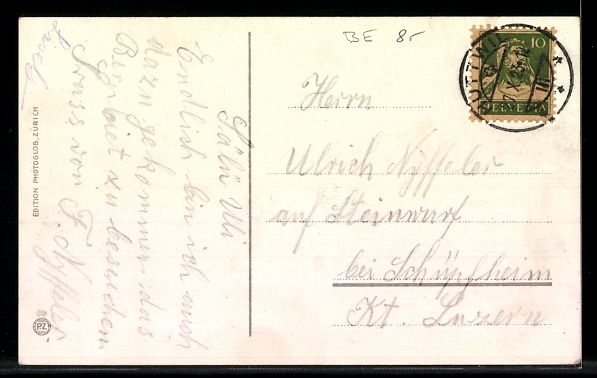 Sälü Uli
Endlich bin ich auch
dazu gekommen das
Bergbiet zu besuchen
Gruss von F. Nyffeler
EDITION PHOTOGLOB, ZÜRICH
PZ
BE 85
10
HELVETIA
HUTTWIL
Herrn
Ulrich Nyffeler
auf Steinwurf
bei Schüpfheim
Kt. Luzern